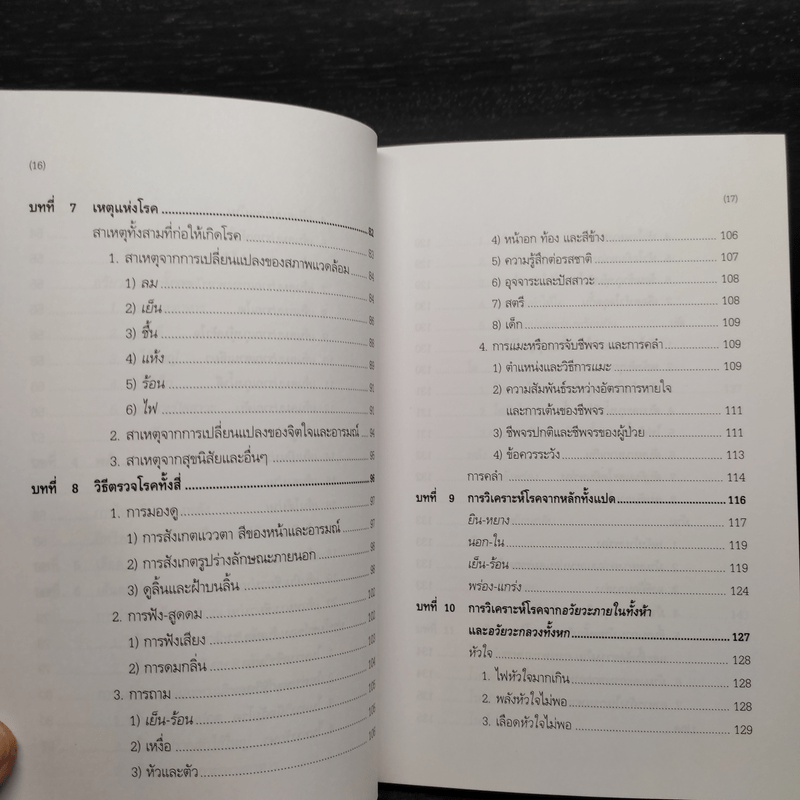 (16)
บทที่ 7 เหตุแห่งโรค 82
สาเหตุทั้งสามที่ก่อให้เกิดโรค 83
1. สาเหตุจากการเปลี่ยนแปลงของสภาพแวดล้อม 84
1) ลม 84
2) เย็น 86
3) ชื้น 88
4) แห้ง 89
5) ร้อน 91
6) ไฟ 92
2. สาเหตุจากการเปลี่ยนแปลงของจิตใจและอารมณ์ 94
3. สาเหตุจากสุขนิสัยและอื่นๆ 95
บทที่ 8 วิธีตรวจโรคทั้งสี่ 96
1. การมองดู 97
1) การสังเกตแววตา สีของหน้าและอารมณ์ 97
2) การสังเกตรูปร่างลักษณะภายนอก 98
3) ดูลิ้นและฝ้าบนลิ้น 98
2. การฟัง-สูดดม 102
1) การฟังเสียง 102
2) การดมกลิ่น 103
3. การถาม 104
1) เย็น-ร้อน 105
2) เหงื่อ 105
3) หัวและตัว 106
(17)
4) หน้าอก ท้อง และสีข้าง 106
5) ความรู้สึกต่อรสชาติ 107
6) อุจจาระและปัสสาวะ 108
7) สตรี 108
8) เด็ก 109
4. การแมะหรือการจับชีพจร และการคลำ 109
1) ตำแหน่งและวิธีการแมะ 109
2) ความสัมพันธ์ระหว่างอัตราการหายใจ
และการเต้นของชีพจร 111
3) ชีพจรปกติและชีพจรของผู้ป่วย 111
4) ข้อควรระวัง 113
การคลำ 114
บทที่ 9 การวิเคราะห์โรคจากหลักทั้งแปด 116
ยิน-หยาง 117
นอก-ใน 119
เย็น-ร้อน 119
พร่อง-แกร่ง 124
บทที่ 10 การวิเคราะห์โรคจากอวัยวะภายในทั้งห้า
และอวัยวะกลวงทั้งหก 127
หัวใจ 128
1. ไฟหัวใจมากเกิน 128
2. พลังหัวใจไม่พอ 128
3. เลือดหัวใจไม่พอ 129